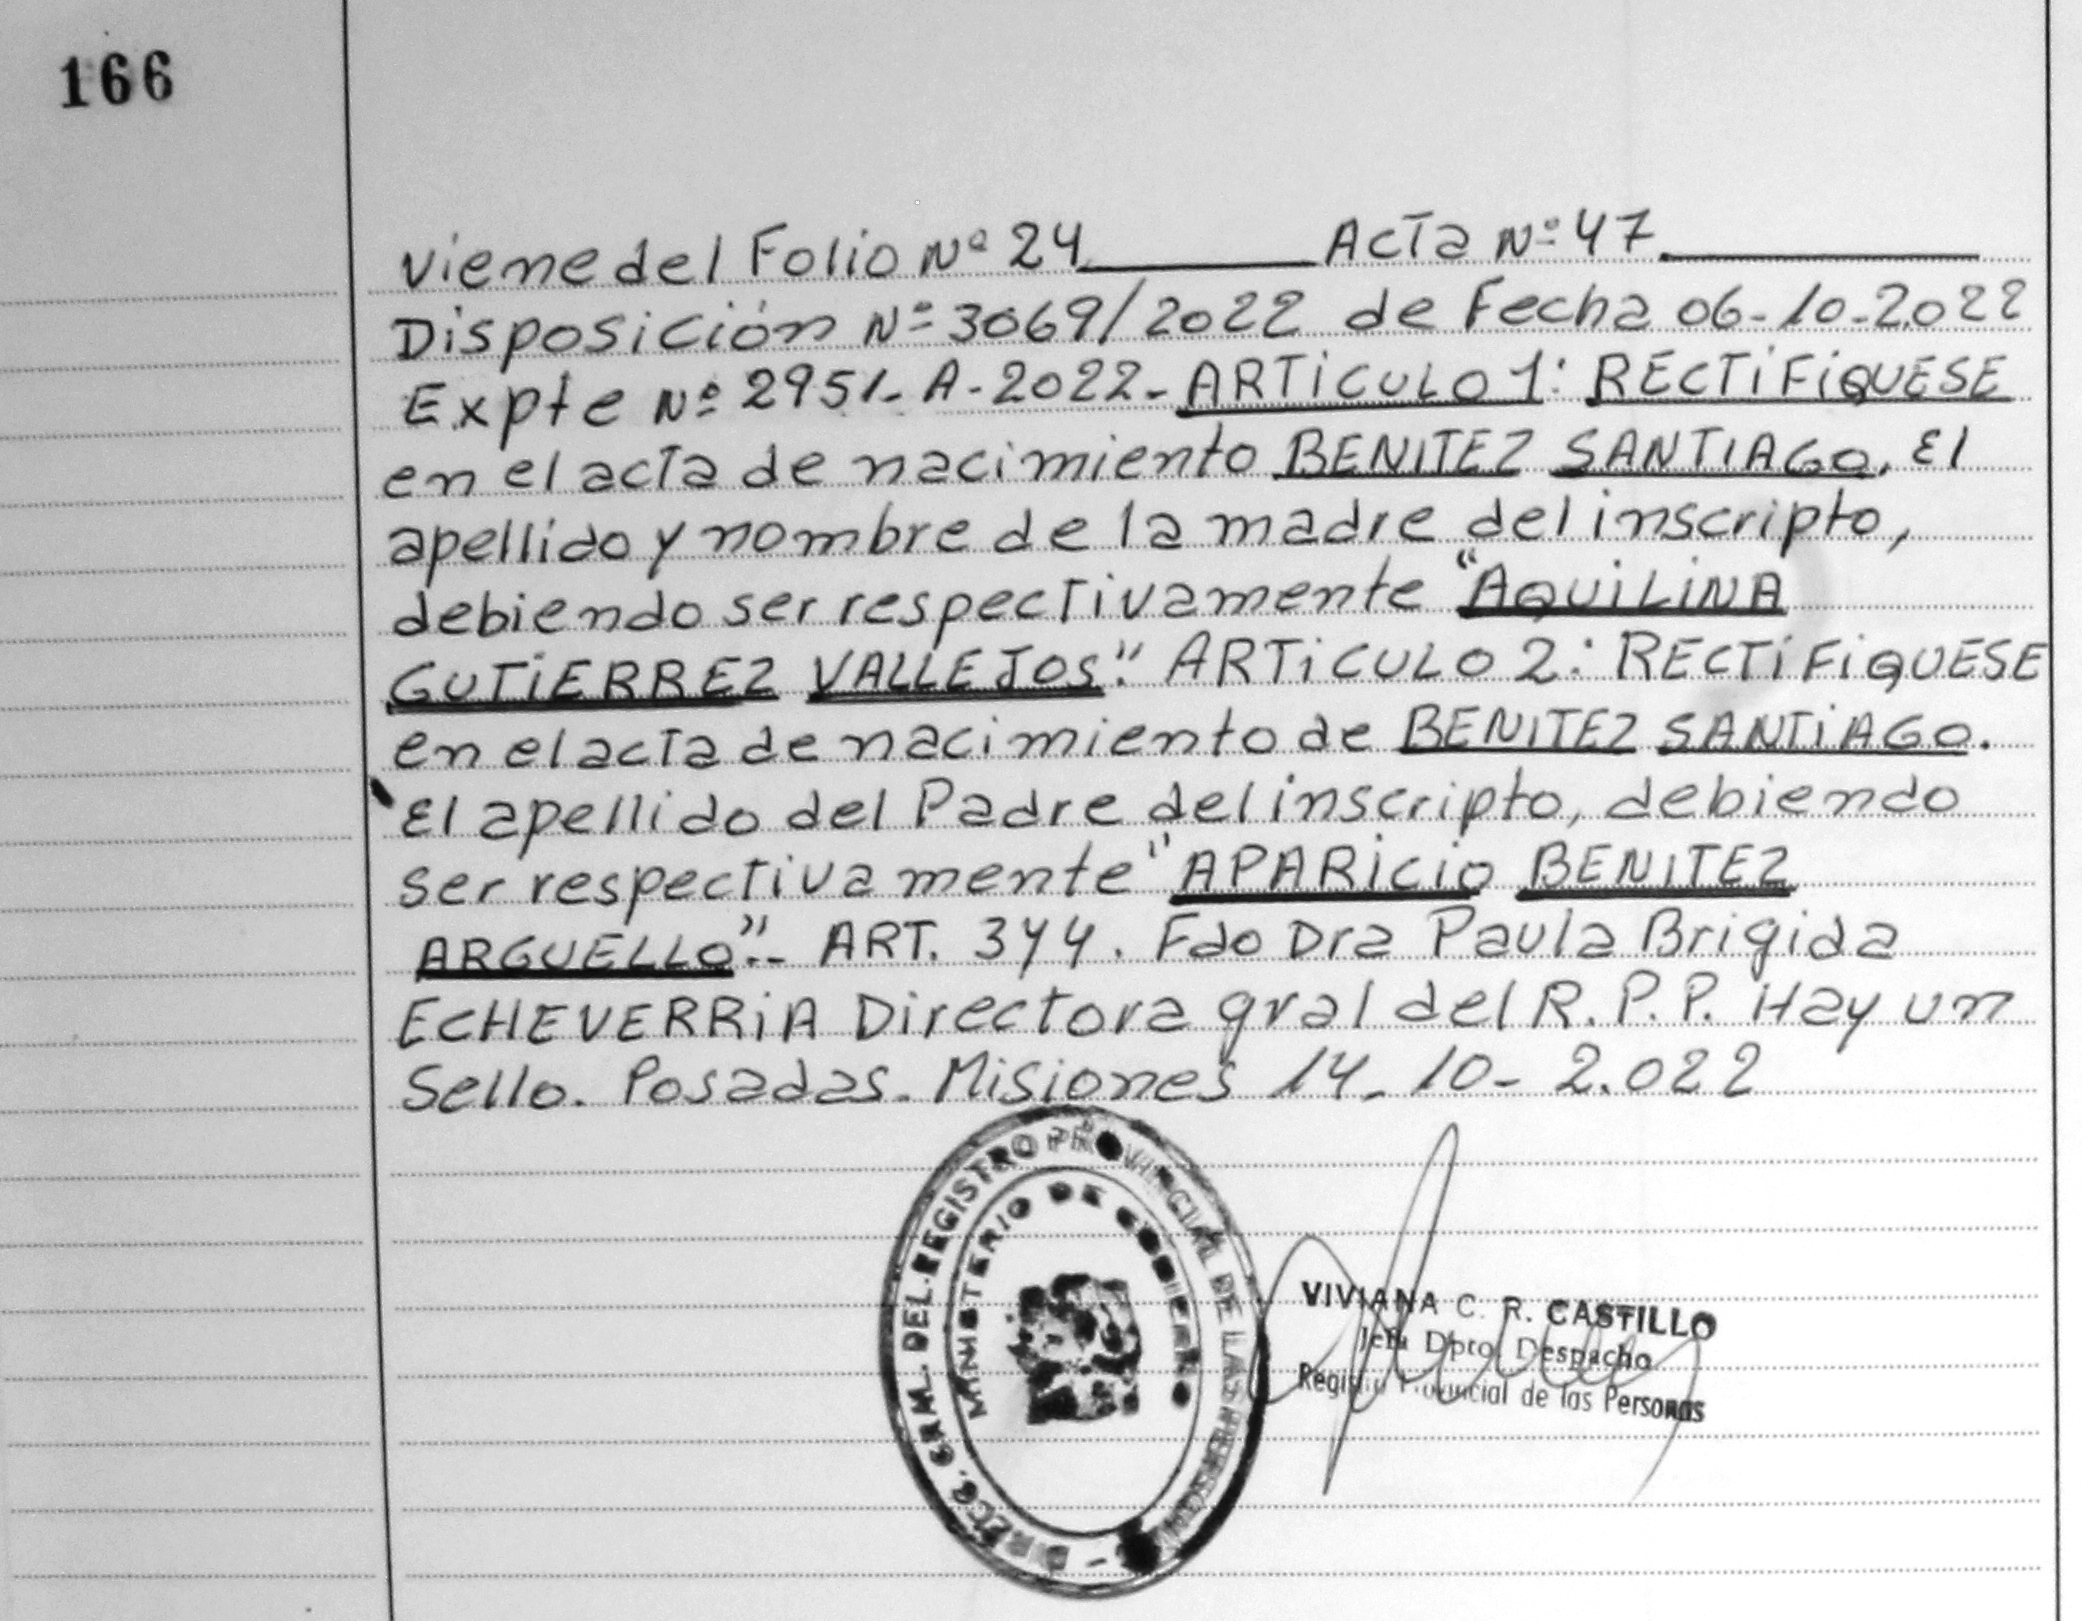 166
Viene del Folio Nº 24 Acta Nº 47
Disposición Nº 3069/2022 de Fecha 06-10-2.022
Expte Nº 2951-A-2022- ARTiCULO 1: RECTiFiQUESE
en el acta de nacimiento BENITEZ SANTIAGO. El
apellido y nombre de la madre del inscripto,
debiendo ser respectivamente "AQUiLiNA
GUTiERREZ VALLEJOS". ARTiCULO 2: RECTiFiQUESE
en el acta de nacimiento de BENITEZ SANTiAGO.
El apellido del Padre del inscripto, debiendo
ser respectivamente "APARiCiO BENITEZ
ARGUELLO".- ART. 3
Fdo Dra Paula Brigida
ECHEVERRiA Directora gral del R.P.P. Hay un
Sello. Posadas. Misiones 14-10-2.022
DIRECC. GRAL. DEL REGISTRO PROVINCIAL DE LAS PERSONAS
MINISTERIO DE GOBIERNO
VIVIANA C. R. CASTILLO
Jefa Dpto. Despacho
Registro Provincial de las Personas